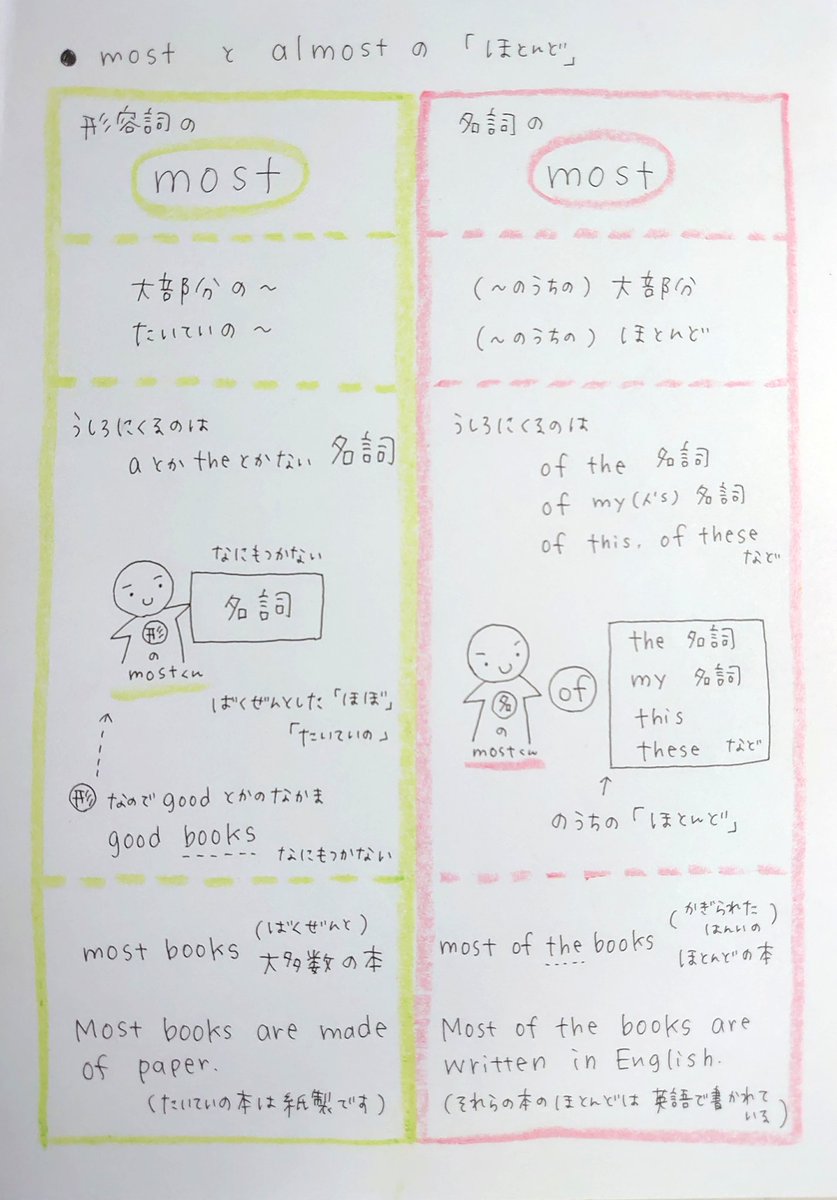 ● most と almost の「ほとんど」
形容詞の
most
大部分の～
たいていの～
うしろにくるのは
aとかtheとかない 名詞
なにもつかない
名詞
形
の
mostくん
ばくぜんとした「ほぼ」
「たいていの」
形 なのでgoodとかのなかま
good books なにもつかない
most books (ばくぜんと)
大多数の本
Most books are made
of paper.
(たいていの本は紙製です)
名詞の
most
(～のうちの) 大部分
(～のうちの) ほとんど
うしろにくるのは
of the 名詞
of my(人's) 名詞
of this, of these
など
名
の
mostくん
of
the 名詞
my 名詞
this
these など
のうちの「ほとんど」
most of the books (かぎられた
はんいの)
ほとんどの本
Most of the books are
written in English.
(それらの本のほとんどは 英語で書かれて
いる)